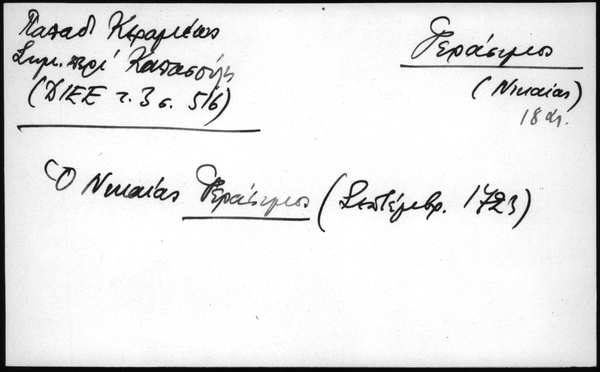 Παπαδ Κεραμεύς
Σημ. περί Καπασούλη
(ΔΙΕΕ τ. 3 σ. 516)
Γεράσιμος
(Νικαίας)
18 αι.
Ὁ Νικαίας Γεράσιμος (Σεπτέμβρ. 1723)